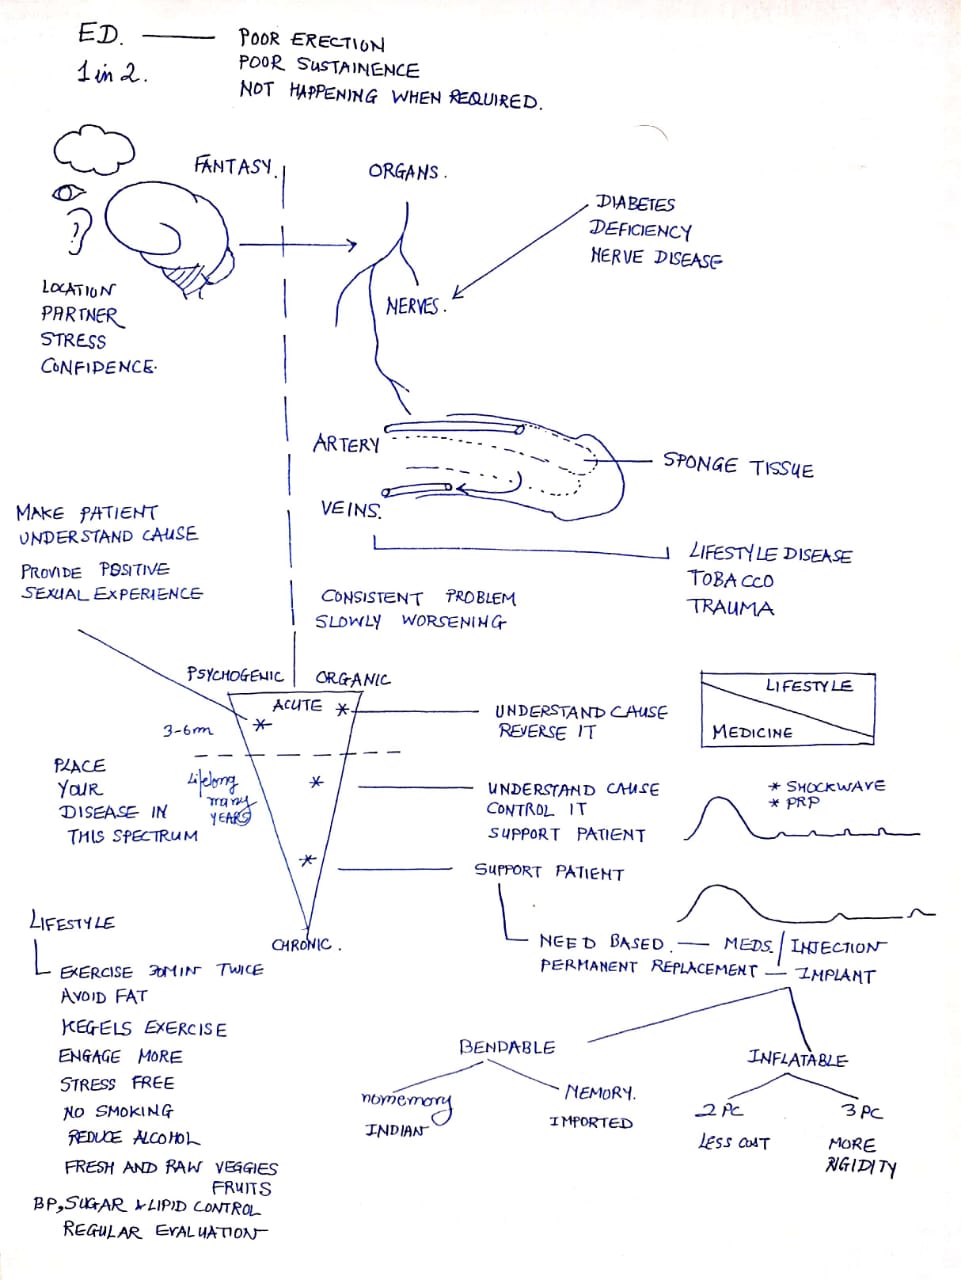 ED. — POOR ERECTION
1 in 2. POOR SUSTAINENCE
NOT HAPPENING WHEN REQUIRED.
FANTASY.
ORGANS.
DIABETES
DEFICIENCY
NERVE DISEASE
?
LOCATION
PARTNER
STRESS
CONFIDENCE.
NERVES.
ARTERY
SPONGE TISSUE
VEINS.
MAKE PATIENT
UNDERSTAND CAUSE
PROVIDE POSITIVE
SEXUAL EXPERIENCE
LIFESTYLE DISEASE
TOBACCO
TRAUMA
CONSISTENT PROBLEM
SLOWLY WORSENING
PSYCHOGENIC
ORGANIC
ACUTE *
*
3-6m
UNDERSTAND CAUSE
REVERSE IT
LIFESTYLE
MEDICINE
PLACE
YOUR
DISEASE IN
THIS SPECTRUM
Lifelong
many
YEARS
*
*
UNDERSTAND CAUSE
CONTROL IT
SUPPORT PATIENT
* SHOCKWAVE
* PRP
SUPPORT PATIENT
CHRONIC.
NEED BASED. — MEDS. / INJECTION
PERMANENT REPLACEMENT — IMPLANT
LIFESTYLE
EXERCISE 30MIN TWICE
AVOID FAT
KEGELS EXERCISE
ENGAGE MORE
STRESS FREE
NO SMOKING
REDUCE ALCOHOL
FRESH AND RAW VEGGIES
FRUITS
BP, SUGAR & LIPID CONTROL
REGULAR EVALUATION
BENDABLE
INFLATABLE
nomemory
INDIAN
MEMORY.
IMPORTED
2 PC
LESS
3 PC
MORE
RIGIDITY